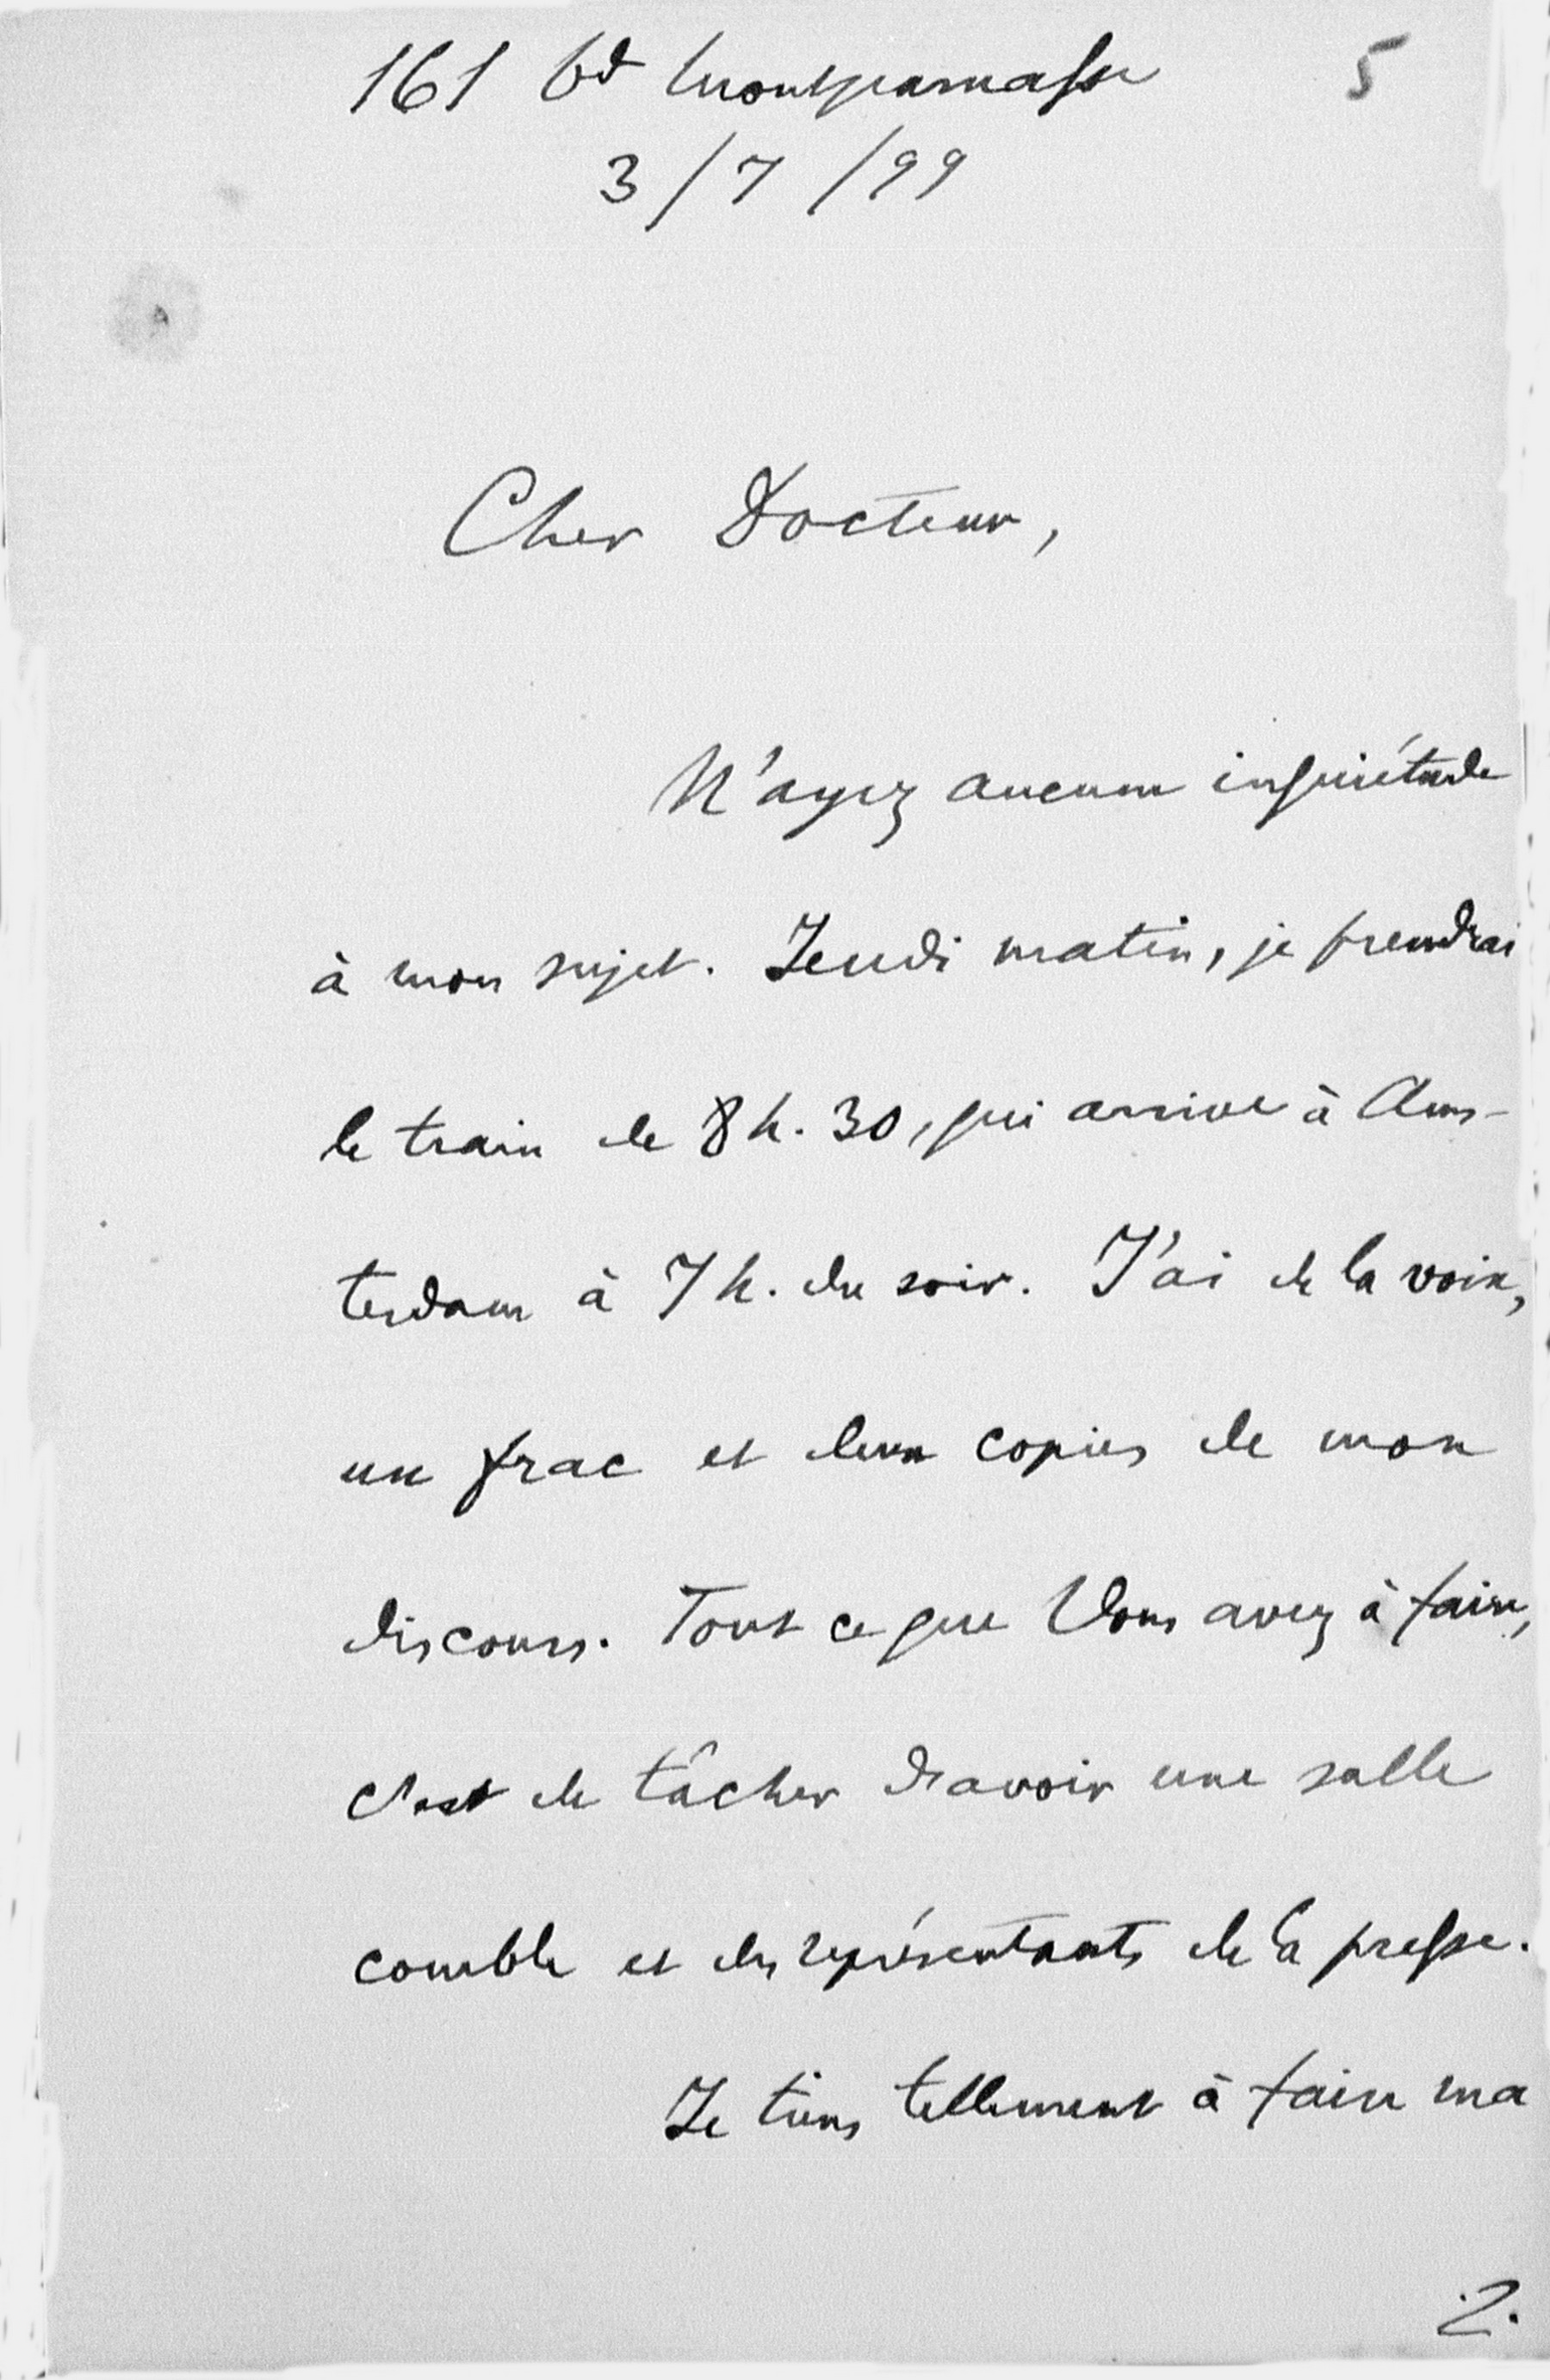 161 bd Montparnasse 5
3/7/99
Cher Docteur,
N'ayez aucune inquiétude
à mon sujet. Jeudi matin, je prendrai
le train de 8 h. 30, qui arrive à Ams-
terdam à 7 h. du soir. J'ai de la voix,
un frac et deux copies de mon
discours. Tout ce que Vous avez à faire,
c'est de tâcher d'avoir une salle
comble et des représentants de la presse.
Je tiens tellement à faire ma
2.